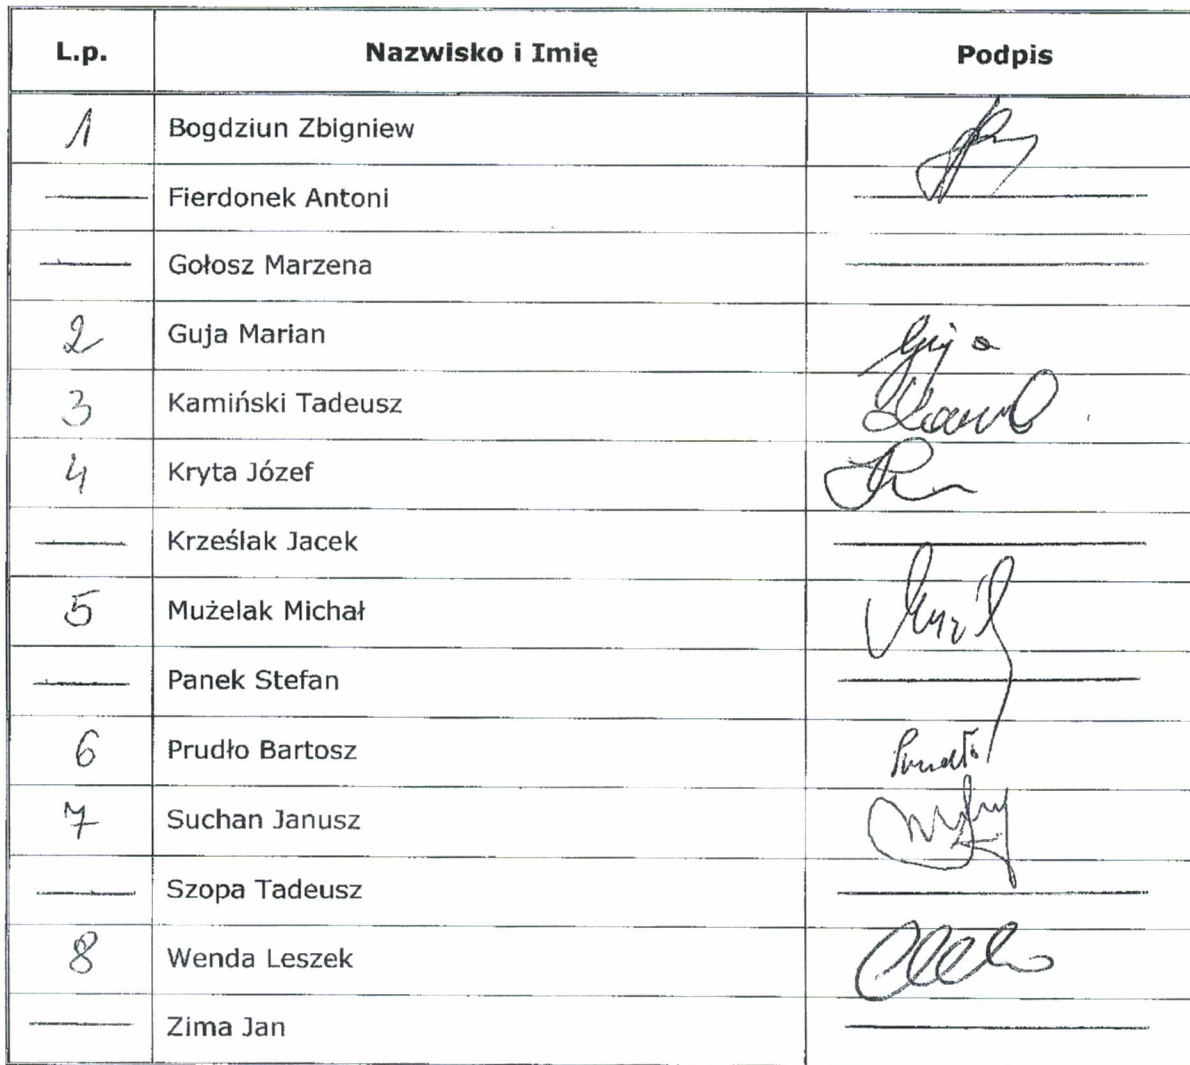 L.p. Nazwisko i Imię Podpis
1 Bogdziun Zbigniew
Fierdonek Antoni
Gołosz Marzena
2 Guja Marian
3 Kamiński Tadeusz
4 Kryta Józef
Krześlak Jacek
5 Mużelak Michał
Panek Stefan
6 Prudło Bartosz Prudło
7 Suchan Janusz
Szopa Tadeusz
8 Wenda Leszek
Zima Jan